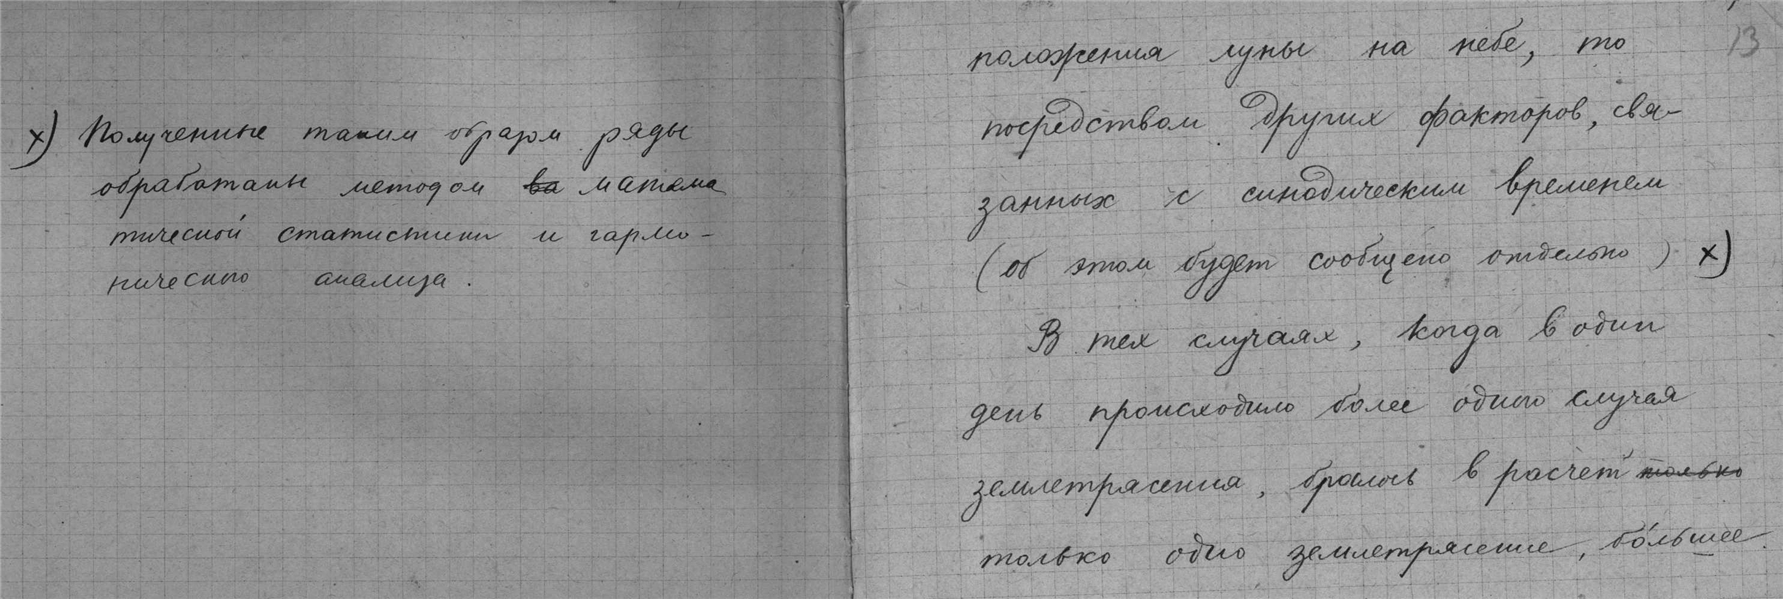 х) Полученные таким образом ряды
обработаны методом ва матема
тической статистики и гармо-
нического анализа.
13
положения луны на небе, то
посредством других факторов, свя-
занных с синодическим временем
(об этом будет сообщено отдельно) х)
В тех случаях, когда в один
день происходило более одного случая
землетрясения, бралось в расчет только
только одно землетрясение, бо́льшее